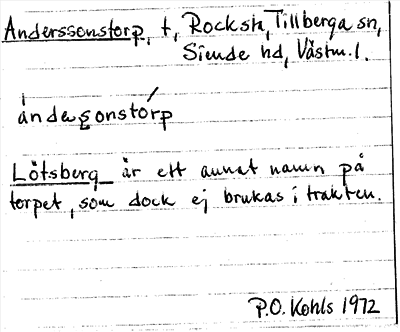 Anderssonstorp, t, Rocksta, Tillberga sn,
Siende hd, Västm. l.
ándeʂonstórp
Lötsberg är ett annat namn på
torpet, som dock ej brukas i trakten.
P.O. Kohls 1972